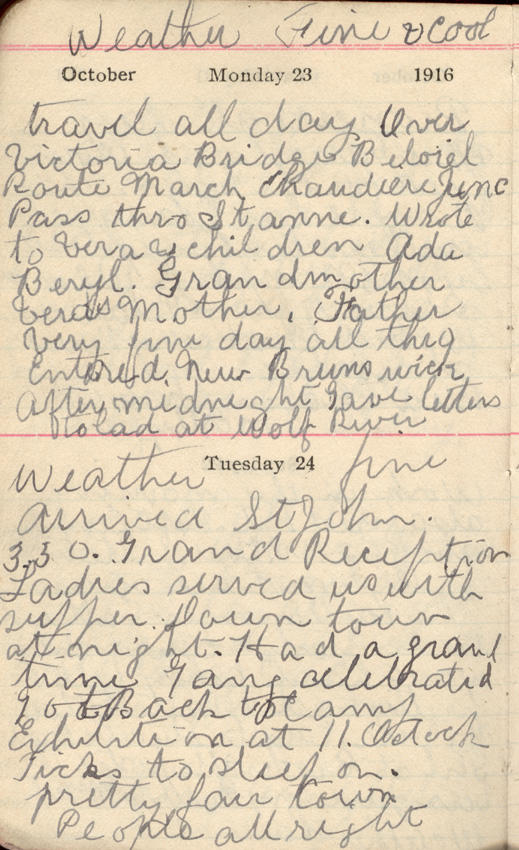 Weather Fine & Cool
October Monday 23 1916
travel all day Over
Victoria Bridge Beloiel
Route March Chaudiere Junc
Pass thro St anne. Wrote
to Vera & children Ada
Beryl. Grandmother
Vera's Mother, Father
Very fine day all thig
Entered. New Brunswick
After midneght Gave letters
to lad at Wolf River
Tuesday 24
Weather fine
Arrived St John.
3.30. Grand Reception
Ladies served us with
supper. Down town
at night. Had a grand
time Gang celebrated
Got Back to Camp
Exhibition at 11. Oclock
Ticks to sleep on.
pretty fair town
People all right